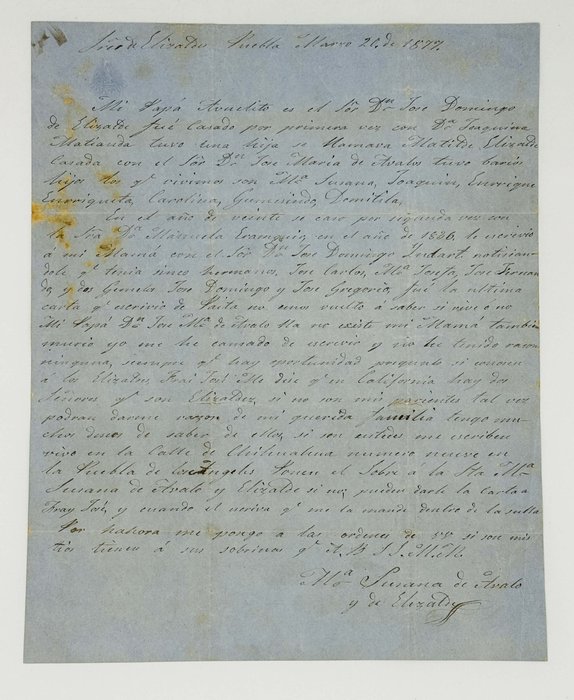 Sres de Elizaldes Puebla Marzo 20. de 1877.
Mi Papá Avuelito es el Sor Dn Jose Domingo
de Elizalde fué Casado por primera vez con Da Joaquina
Matianda tuvo una hija se llamava Matilde Elizalde
Casada con el Sor Dn Jose Maria de Avalos tuvo barios
hijos los qe vivimos son Ma Susana, Joaquin, Enrrique
Enrriqueta, Carolina, Gumesindo, Domitila,
En el año de veinte se caso por segunda vez con
la Sra Da Manuela en el año de 1836, le escrivio
á mi Mamá con el Sor Dn Jose Domingo Indart. notisian-
dole qe tenia sinco hermanos, Jose Carlos, Ma Josefa, Jose Fernan-
do, y dos Gemelos Jose Domingo y Jose Gregorio, fué la ultima
carta qe escrivio de Paita no emos vuelto á saber si vive ó no
Mi Papá Dn Jose Ma de Avalo lla no existe mi Mamá tambien
murio yo me he cansado de escrevir y no he tenido razon
ninguna, siempre qe hay oportunidad pregunto si conosen
á los Elizaldes, Frai José Me dise qe en California hay dos
Señores qe son Elizaldes, si no son mis parientes tal vez
podran darme razon de mi querida familia tengo mu-
chos deseos de saber de ellos, si son entises me escriben
vivo en la Calle de Chihuahua numero nueve en
la Puebla de los Angeles Ponen el Sobre á la Sta Ma
Susana de Avalo y Elizalde si no, pueden darle la Carta a
Fray José, y cuando el escriva qe me la mande dentro de la sulla
Por hahora me pongo a las ordenes de VV si son mis
tios tienen á sus sobrinas qe
Ma Susana de Avalo
y de Elizalde